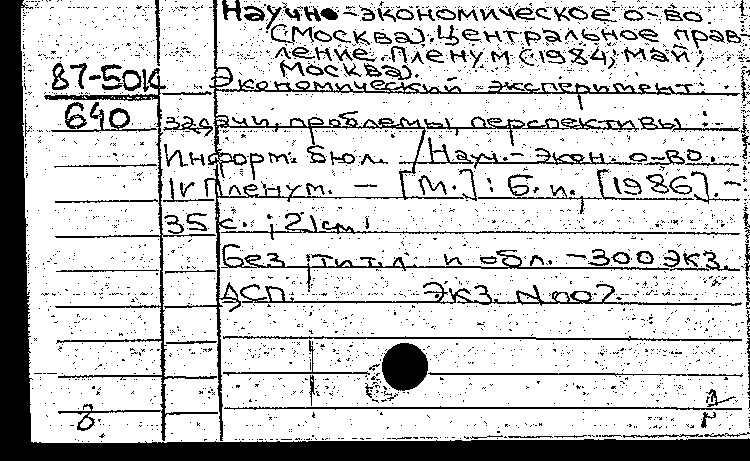 Научно-экономическое о-во
(Москва). Центральное прав-
ление. Пленум (1984; май;
Москва).
87-5014
640
Экономический эксперимент:
задачи, проблемы, перспективы :-
Информ. бюл. / Науч.-экон. о-во.
Пленум. — [М.] : Б. и., [1986]. -
35 с. ; 21 см.
Без тит. л. и обл. - 300 экз.
ДСП. Экз. N 007.
8